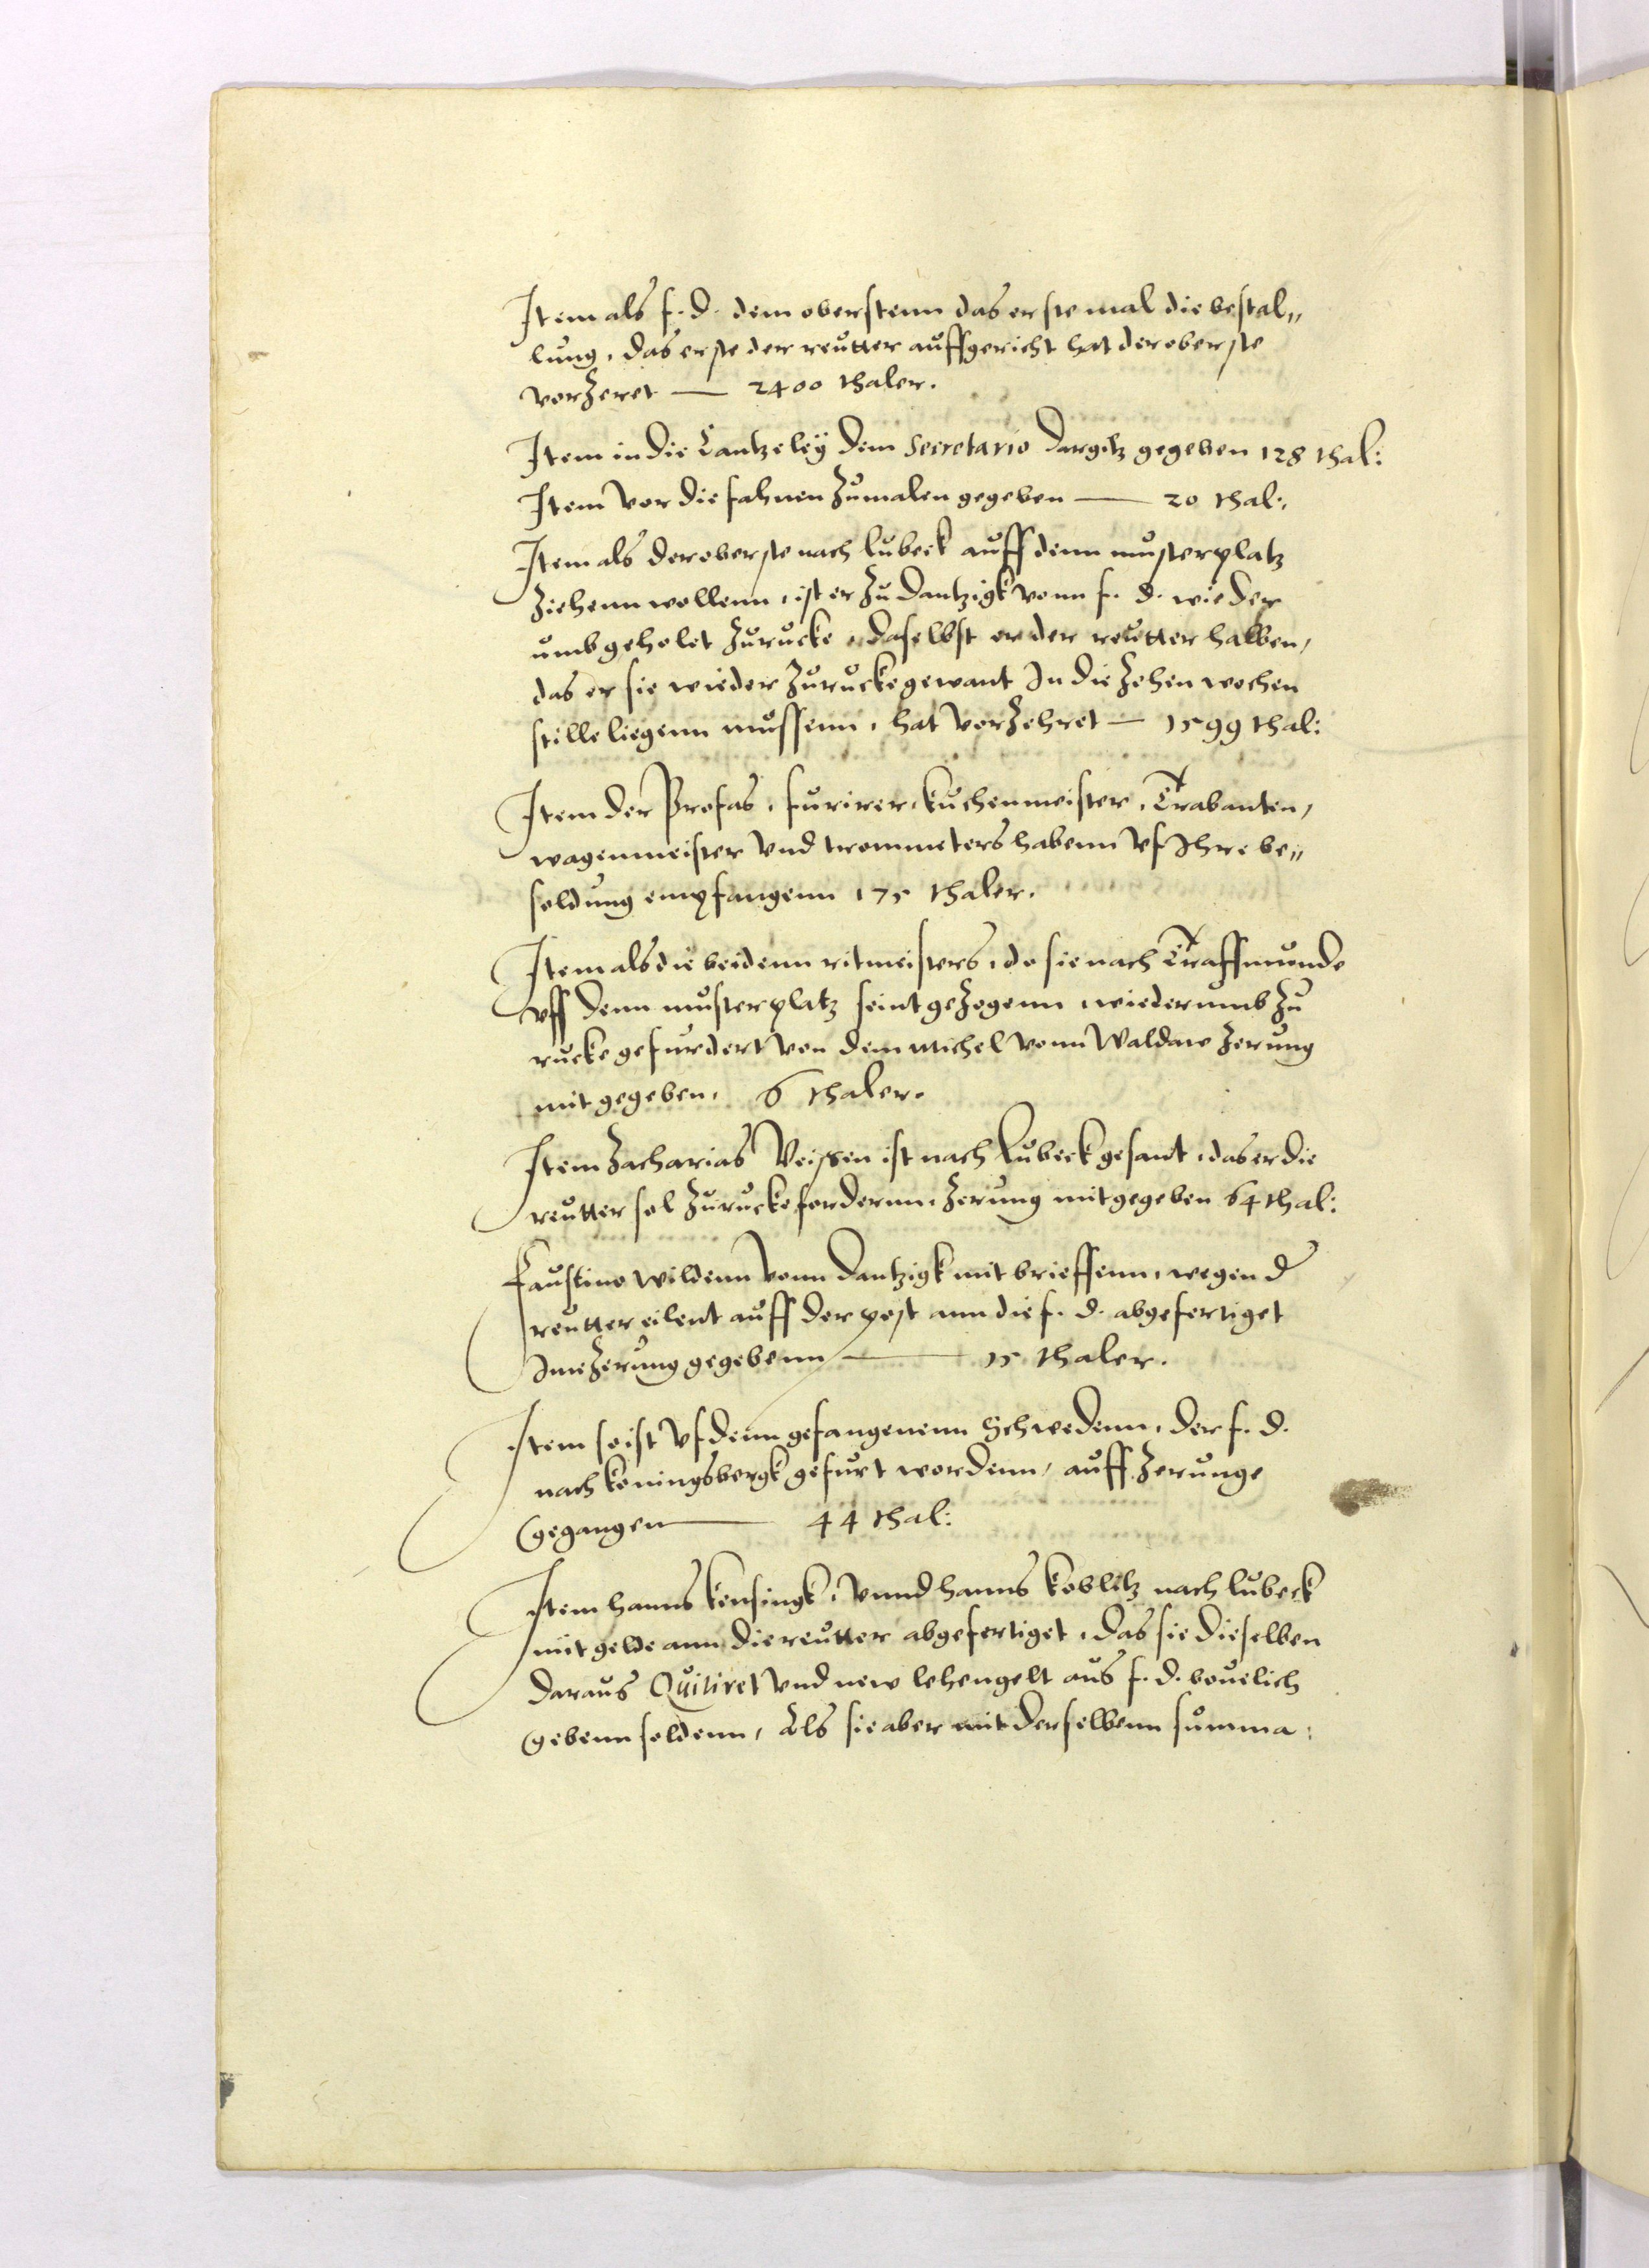 Item als f. d. dem oberstenn das erste mal die bestal„
lung, das erste der reutter auffgericht hat der oberste
vorzeret — 2400 thaler.
Item in die Cantzeleÿ dem Secretario Dargitz gegeben 128 thal:
Item vor die fahnen zumalen gegeben — 20 thal:
Item als der oberste nach lubeck auff denn musterplatz
ziehenn wollenn, ist er zu Dantzigk vonn f. d. wieder
umb geholet zurucke, daselbst er der reutter halben,
das er sie wieder zurucke gewant In die zehen wochen
stille liegenn mussenn, hat vorzehret — 1599 thal:
Item der Profas, furirer, kuchenmeister, Trabanten,
wagenmeister vnd trommeters habenn vf Ihre be„
soldung empfangenn 175 thaler.
Item als die beidenn ritmeisters, do sie nach Traffmunde
vff denn musterplatz seint gezogenn, wiederumb zu
rucke gefurdert von dem Michel vonn Waldaw zerung
mit gegeben, 6 thaler.
Item Zacharias Weissen ist nach Lubeck gesant, das er die
reutter sol zurucke fordernn, zerung mitgegeben 64 thal:
Faustino wildenn vonn Dantzigk mit brieffenn, wegen d
reutter eilent auff der post ann die f. d. abgefertiget
Ime zerung gegebenn — 15 thaler.
Item so ist vf denn gefangenenn Schwedenn, der f. d.
nach koningsbergk gefurt wordenn, auff zerunge
gegangen — 44 thal:
Item hanns kensingk, vnnd hanns koblitz nach lubeck
mit gelde ann die reutter abgefertiget, das sie dieselben
daraus Quitiret vnd new lehengelt aus f. d. beuelich
gebenn soldenn, Als sie aber mit derselbenn summa: